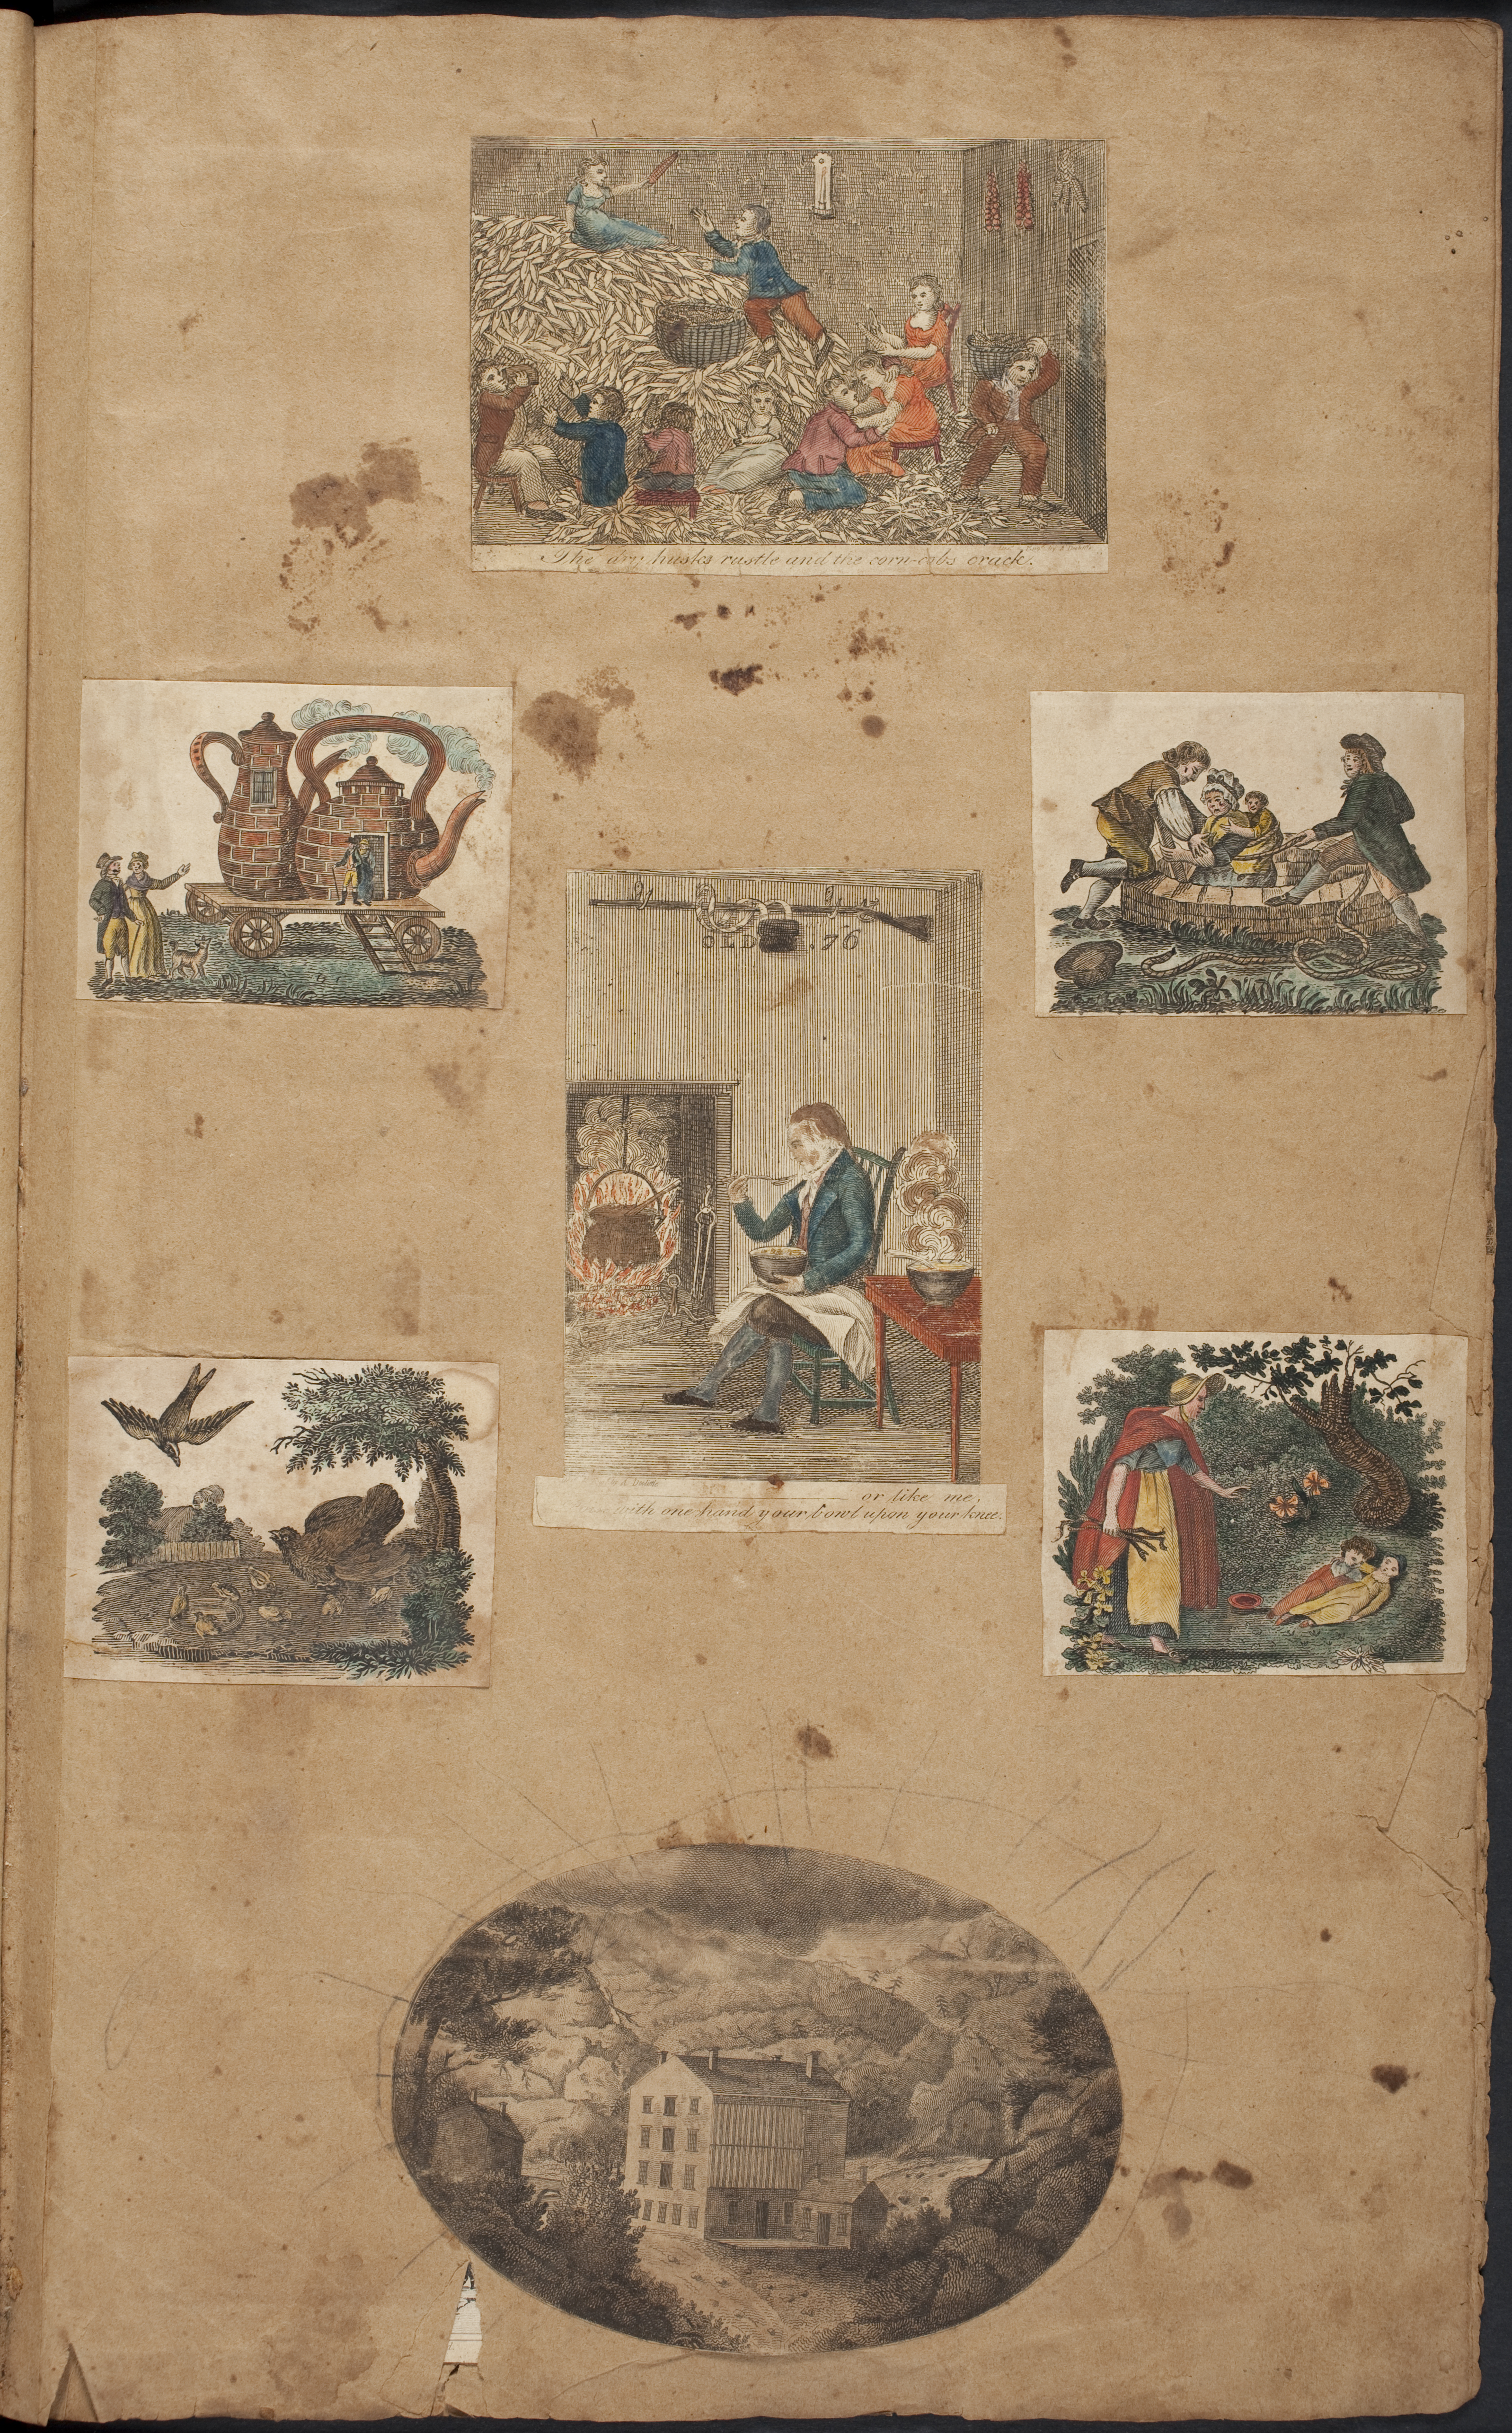 The dry husks rustle and the corn-cobs crack.
OLD .76
or like me,
with one hand your bowl upon your knee.